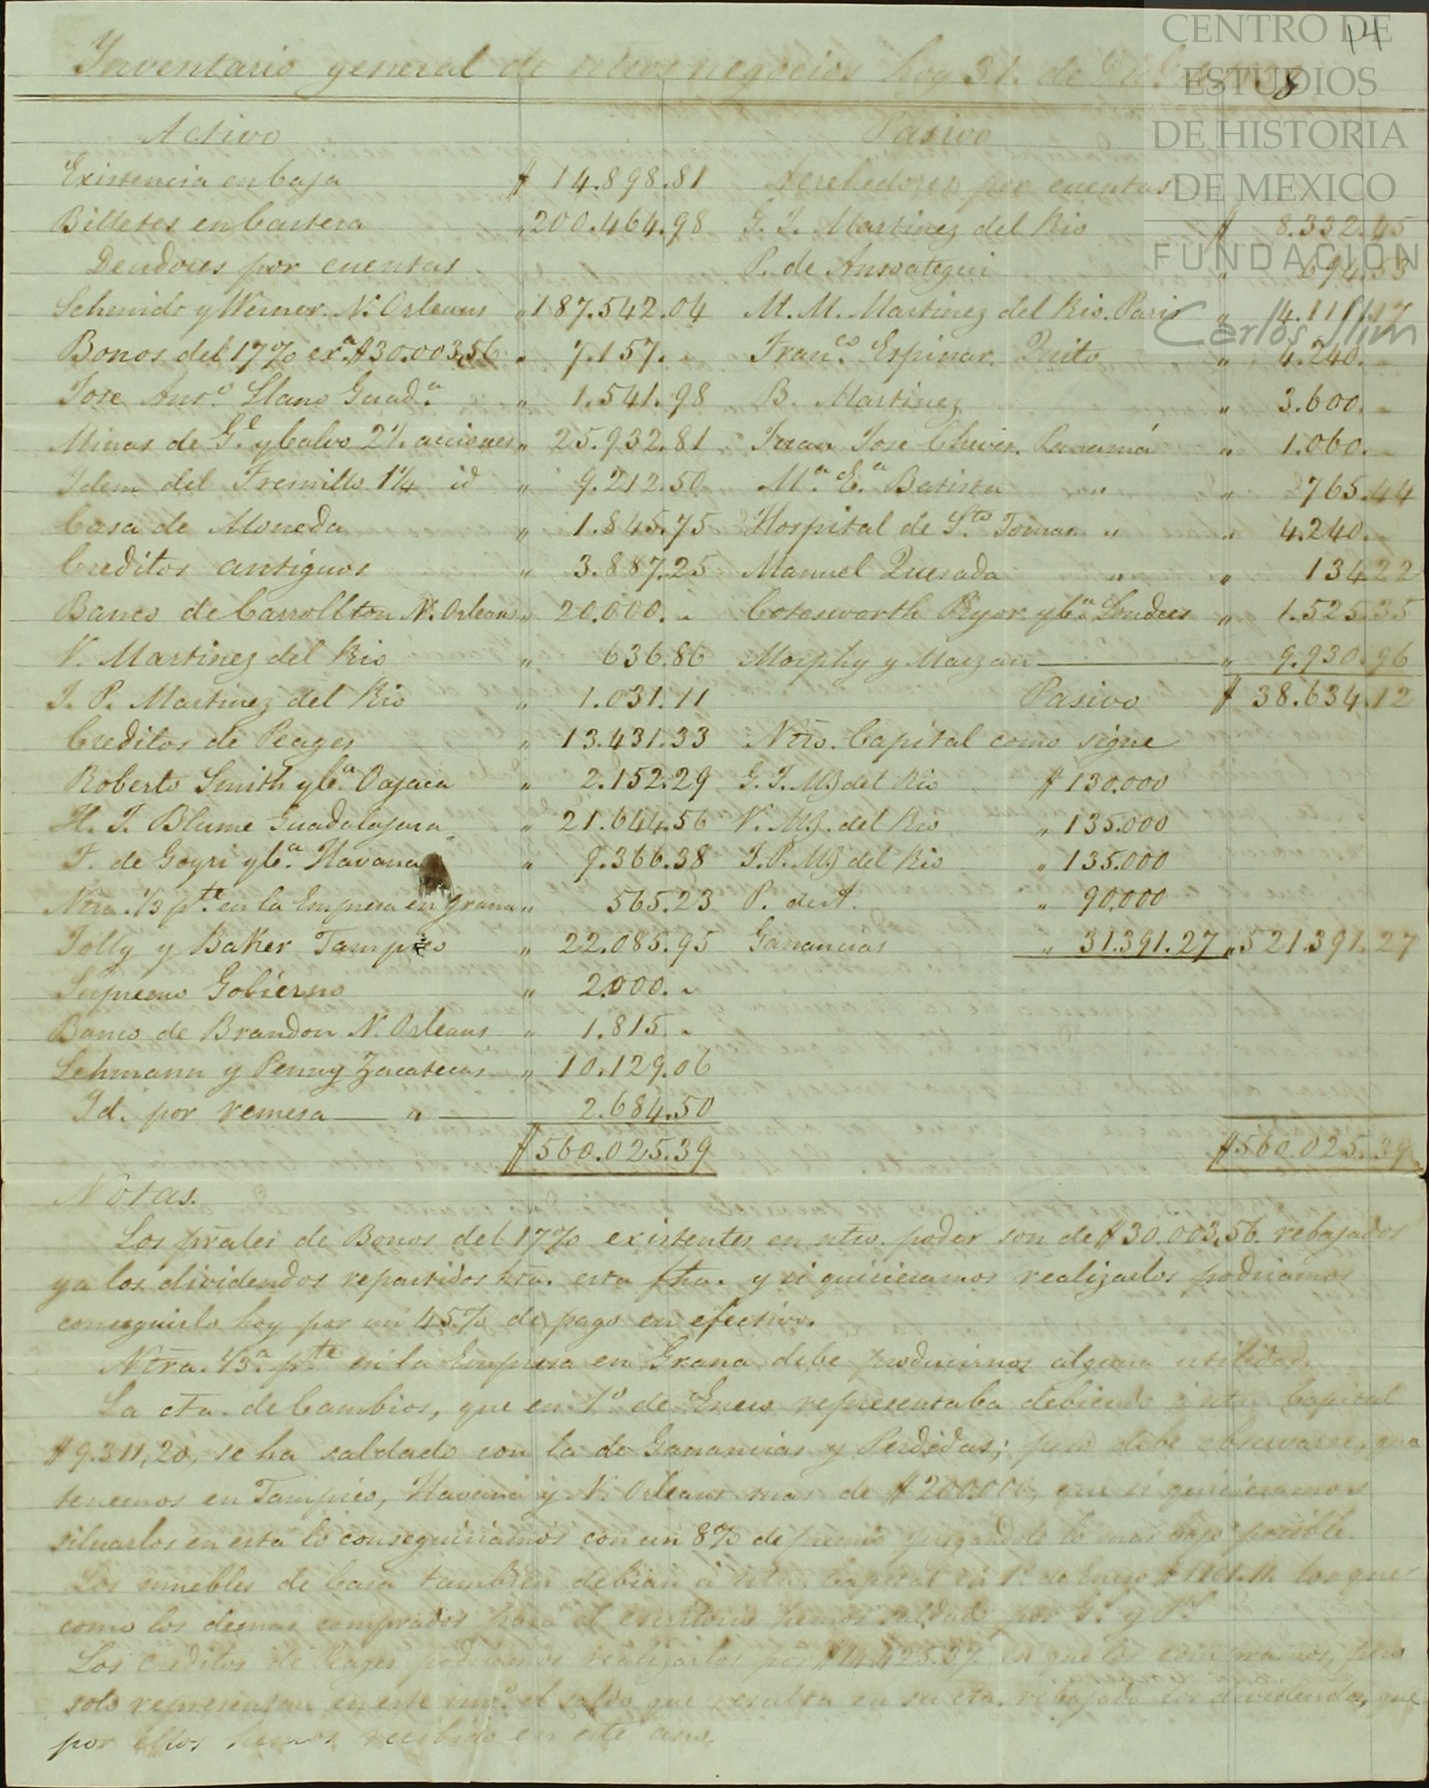 CENTRO DE
ESTUDIOS
DE HISTORIA
DE MEXICO
FUNDACIÓN
Carlos Slim
14
Inventario general de ntros negocios hoy 31. de 8
Activo
Existencia en Caja $ 14.898.81
Billetes en Cartera " 200.464.98
Deudores por cuentas
Schmidt y Werner. N. Orleans " 187.542.04
Bonos del 17% exa. $30.003,56 " 7.157. "
Jose Anto. Llano Guada. " 1.541.98
Minas de Ge. y Calvo 2½ acciones " 25.932.81
Idem del Fresnillo 1¼ id " 9.212.50
Casa de Moneda " 1.845.75
Creditos antiguos " 3.887.25
Banco de Carrollton N. Orleans " 20.000. "
V. Martinez del Rio " 636.86
J. P. Martinez del Rio " 1.031.11
Creditos de Peages " 13.431.33
Roberto Smith y Ca. Oajaca " 2.152.29
H. J. Blume Guadalajara " 21.644.56
F. de Goyri y Ca. Havana " 9.366.38
Ntra. 1/3 pte. en la Empresa en grana " 565.23
Jolly y Baker Tampico " 22.085.95
Supremo Gobierno " 2.000. "
Banco de Brandon N. Orleans " 1.815. "
Lehmann y Penny Zacatecas " 10.129.06
Id. por remesa " 2.684.50
$560.025.39
Pasivo
Acrehedores por cuentas
G. J. Martinez del Rio $ 8.332.45
P. de Ansoategui " 694.53
M. M. Martinez del Rio. Paris " 4.111.17
Franco. Espinar. Quito " 4.240. "
B. Martinez " 3.600. "
Juan Jose Panamá " 1.060. "
Ma. Ea. Batista " " 765.44
Hospital de Sto. Tomas " " 4.240. "
Manuel Quesada " " 134.22
Cotesworth Pryor y Ca. Londres " 1.525.35
Morphy y Marzan " 9.930.96
Pasivo $ 38.634.12
Ntro. Capital como sigue
G. J. Mz del Rio $ 130.000
V. Mz. del Rio " 135.000
J. P. Mz del Rio " 135.000
P. de A. " 90.000
Ganancias " 31.391.27 " 521.391.27
$560.025.39
Notas.
Los prales de Bonos del 17% existentes en ntro. poder son de $30.003,56 rebajados
ya los dividendos repartidos hta. esta fha. y si quisieramos realizarlos podriamos
conseguirlo hoy por un 45% de pago en efectivo.
Ntra. 1/3a. pte en la Empresa en Grana debe producirnos alguna utilidad.
La cta. de Cambios, que en 1o. de Enero representaba debiendo á ntro. Capital
$9.311,20, se ha saldado con la de Ganancias y Perdidas; pero debe observarse, que
tenemos en Tampico, Havana y N. Orleans mas de $200.000, que si quisieramos
situarlos en esta lo conseguiriamos con un 8% de premio juzgandolo lo mas bajo posible.
Los muebles de Casa tambien debian á ntro. Capital en 1o. de Enero los que
como los demas comprados para el escritorio hemos saldado por Gs. y Ps.
Los creditos de Peages podriamos realizarlos por en que los compramos, pero
solo representan en este invo. el saldo que resulta en su cta. rebajado los dividendos, que
por ellos hemos recibido en este año.